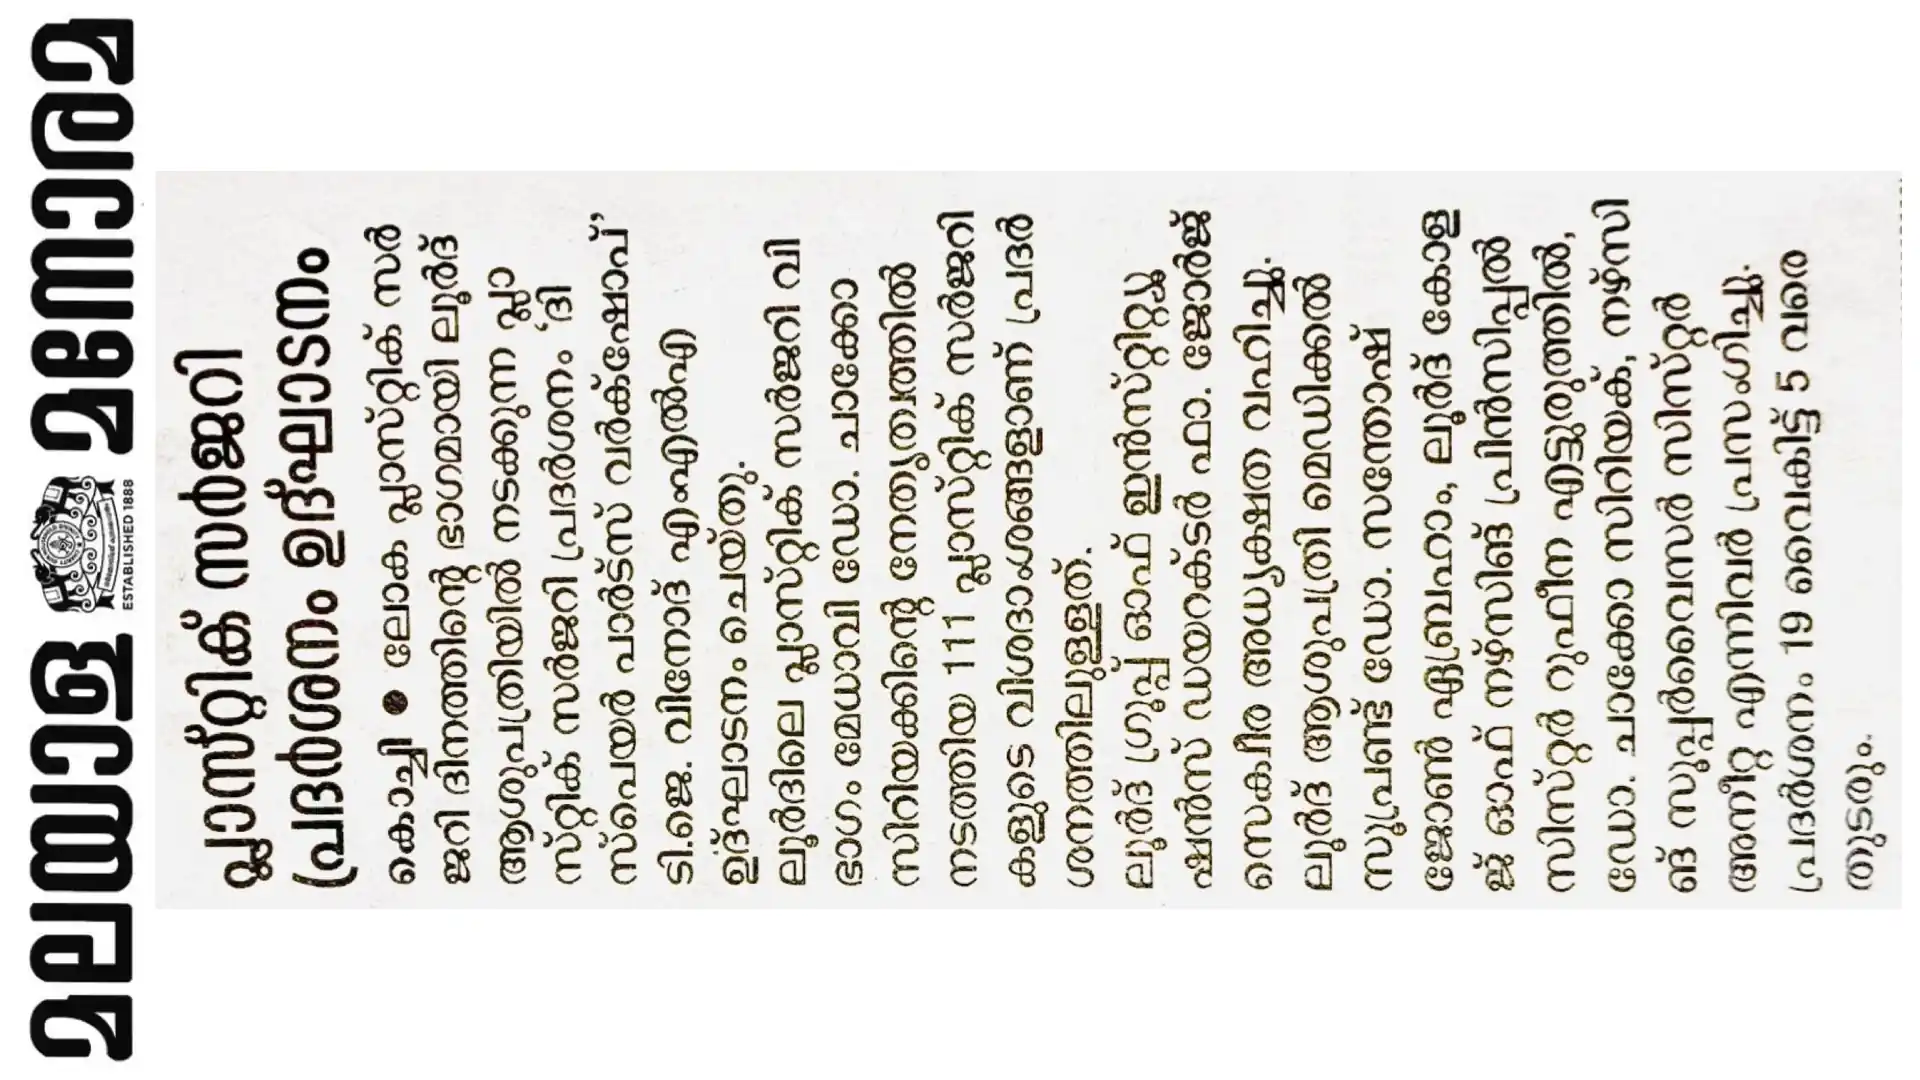 മലയാള മനോരമ
ESTABLISHED 1888
പ്ലാസ്റ്റിക് സർജറി
പ്രദർശനം ഉദ്ഘാടനം
കൊച്ചി ● ലോക പ്ലാസ്റ്റിക് സർ
ജറി ദിനത്തിന്റെ ഭാഗമായി ലൂർദ്
ആശുപത്രിയിൽ നടക്കുന്ന പ്ലാ
സ്റ്റിക് സർജറി പ്രദർശനം 'ദി
സ്പെയർ പാർട്സ് വർക്‌ഷോപ്',
ടി.ജെ. വിനോദ് എംഎൽഎ
ഉദ്ഘാടനം ചെയ്തു.
ലൂർദിലെ പ്ലാസ്റ്റിക് സർജറി വി
ഭാഗം മേധാവി ഡോ. ചാക്കോ
സിറിയക്കിന്റെ നേതൃത്വത്തിൽ
നടത്തിയ 111 പ്ലാസ്റ്റിക് സർജറി
കളുടെ വിശദാംശങ്ങളാണ് പ്രദർ
ശനത്തിലുള്ളത്.
ലൂർദ് ഗ്രൂപ്പ് ഓഫ് ഇൻസ്റ്റിറ്റ്യൂ
ഷൻസ് ഡയറക്ടർ ഫാ. ജോർജ്
സെക്വീര അധ്യക്ഷത വഹിച്ചു.
ലൂർദ് ആശുപത്രി മെഡിക്കൽ
സൂപ്രണ്ട് ഡോ. സന്തോഷ്
ജോൺ ഏബ്രഹാം, ലൂർദ് കോള
ജ് ഓഫ് നഴ്സിങ് പ്രിൻസിപ്പൽ
സിസ്റ്റർ റുഫീന എട്ടുരുത്തിൽ,
ഡോ. ചാക്കോ സിറിയക്, നഴ്സി
ങ് സൂപ്പർവൈസർ സിസ്റ്റർ
അനീറ്റ എന്നിവർ പ്രസംഗിച്ചു.
പ്രദർശനം 19 വൈകിട്ട് 5 വരെ
തുടരും.